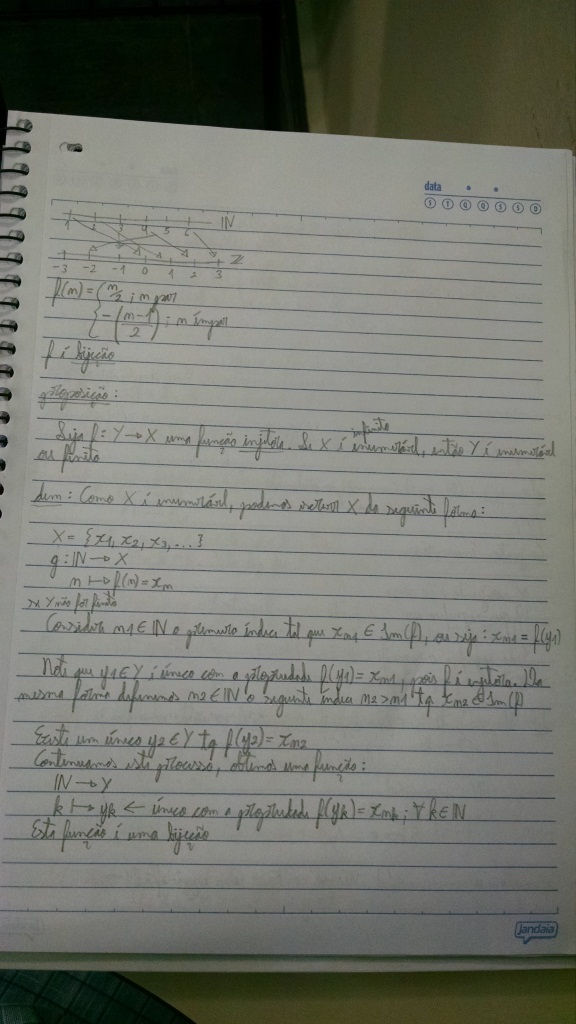 data
S T Q Q S S D
1 2 3 4 5 6 IN
-3 -2 -1 0 1 2 3 Z
f(n) = { n/2 ; n par
{ -(n-1/2) ; n ímpar
f é bijeção
proposição:
infinito
Seja f: Y → X uma função injetora. Se X é enumerável, então Y é enumerável
ou finito
dem: Como X é enumerável, podemos escrever X da seguinte forma:
X = {x1, x2, x3, ...}
g: IN → X
n ↦ f(n) = xn
se Y não for finito
Considere n1 ∈ IN o primeiro índice tal que xn1 ∈ Im(f), ou seja: xn1 = f(y1)
Note que y1 ∈ Y é único com a propriedade f(y1) = xn1, pois f é injetora. Da
mesma forma definimos n2 ∈ IN o seguinte índice n2 > n1 tq xn2 ∈ Im(f)
Existe um único y2 ∈ Y tq f(y2) = xn2
Continuamos este processo, obtemos uma função:
IN → Y
k ↦ yk ← único com a propriedade f(yk) = xnk ; ∀ k ∈ IN
Esta função é uma bijeção
jandaia